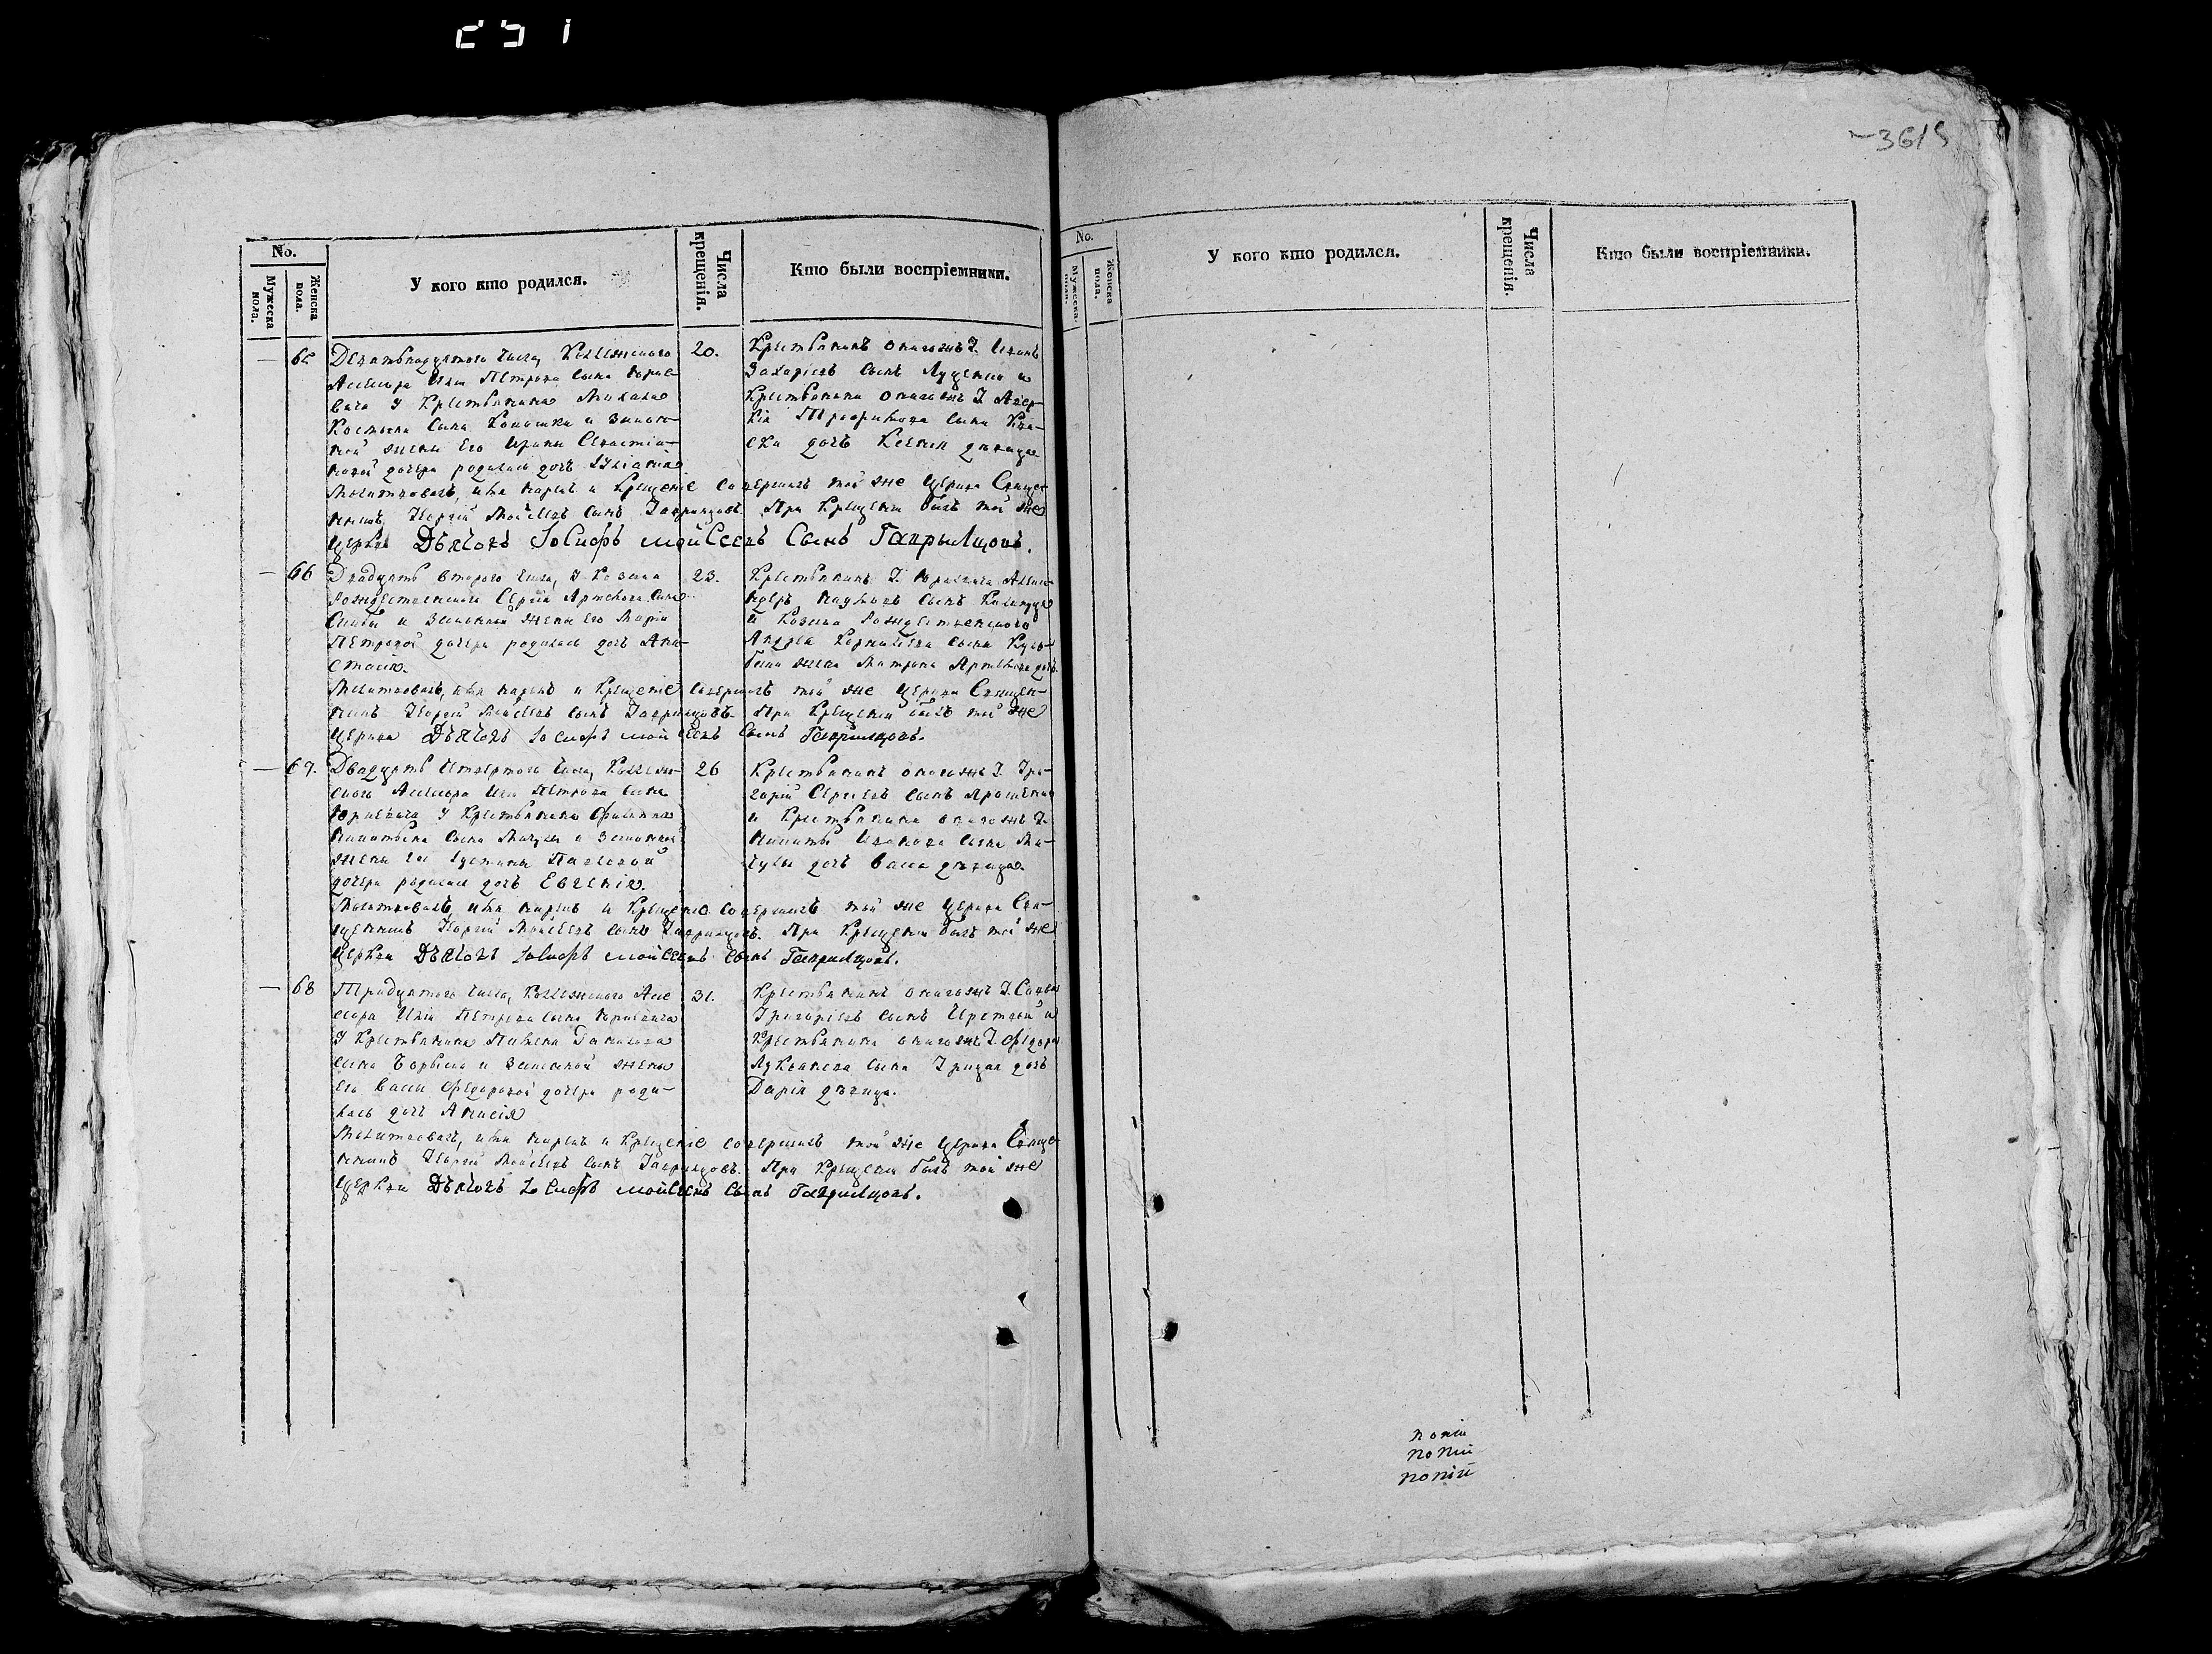 251
3615
No.
Мужеска пола.
Женска пола.
У кого кто родился.
Числа крещенія.
Кто были воспріемники.
— 65
Девятьнадцятого числа, Коллежского
Ассесора Иліи Петрова сына Юрие-
вича у крестьянина Михаила
сына и закон-
ной жены его Ирины Севастіа-
новой дочери родилась дочь Іуліанія
20.
Крестьянинъ оного жъ Г. Иванъ
Захаріевъ сынъ Луценко и
крестьянина оного жъ Г. Авер-
кія Трофимова сына
дочь Ксенія дѣвица
Молитвовалъ, имя нарекъ и крещеніе совершилъ той же церкви Свяще-
нникъ Георгій Мойсеевъ сынъ Гаврилцовъ. При крещеніи былъ той же
церкви Дьяконъ Іосифъ Мойсеевъ сынъ Гаврилцовъ.
— 66
Двадцять второго числа, у козака
Рождественского Сергія Артемова сына
и законной жены его Маріи
Петровой дочери родилась дочь Ана-
стасія.
23.
Крестьянинъ Г. Юриевича Алекса-
ндръ Наумовъ сынъ
и козака Рождественского
Андрея Корнилиева сына
жена Матрона Артемова дочь.
Молитвовалъ, имя нарекъ и крещеніе совершилъ той же церкви Священ-
никъ Георгій Мойсеевъ сынъ Гаврилцовъ. При крещеніи былъ той же
церкви Дьяконъ Іосифъ Мойсеевъ сынъ Гаврилцовъ.
— 67.
Двадцять четвертого числа, Коллеж-
ского Ассесора Иліи Петрова сына
Юриевича у крестьянина Филиппа
сына и законной
жены его Іустины Павловой
дочери родилась дочь Евгенія.
26
Крестьянинъ оного жъ Г. Гри-
горій Сергіевъ сынъ Ярошенко
и крестьянина оного жъ Г.
Никиты Иванова сына
дочь Васса дѣвица.
Молитвовалъ, имя нарекъ и крещеніе совершилъ той же церкви Свя-
щенникъ Георгій Мойсеевъ сынъ Гаврилцовъ. При крещеніи былъ той же
церкви Дьяконъ Іосифъ Мойсеевъ сынъ Гаврилцовъ.
— 68
Тридцятого числа, Коллежского Ассе
сора Иліи Петрова сына Юриевича
у крестьянина Пимена Данилова
сына и законной жены
его Вассы Федоровой дочери роди-
лась дочь Анисія
31.
Крестьянинъ оного жъ Г. Савва
Григоріевъ сынъ и
крестьянина оного жъ Г. Федора
Лукьянова сына Грицая дочь
Дарія дѣвица.
Молитвовалъ, имя нарекъ и крещеніе совершилъ той же церкви Свяще-
нникъ Георгій Мойсеевъ сынъ Гаврилцовъ. При крещеніи былъ той же
церкви Дьяконъ Іосифъ Мойсеевъ сынъ Гаврилцовъ.
No.
Мужеска пола.
Женска пола.
У кого кто родился.
Числа крещенія.
Кто были воспріемники.